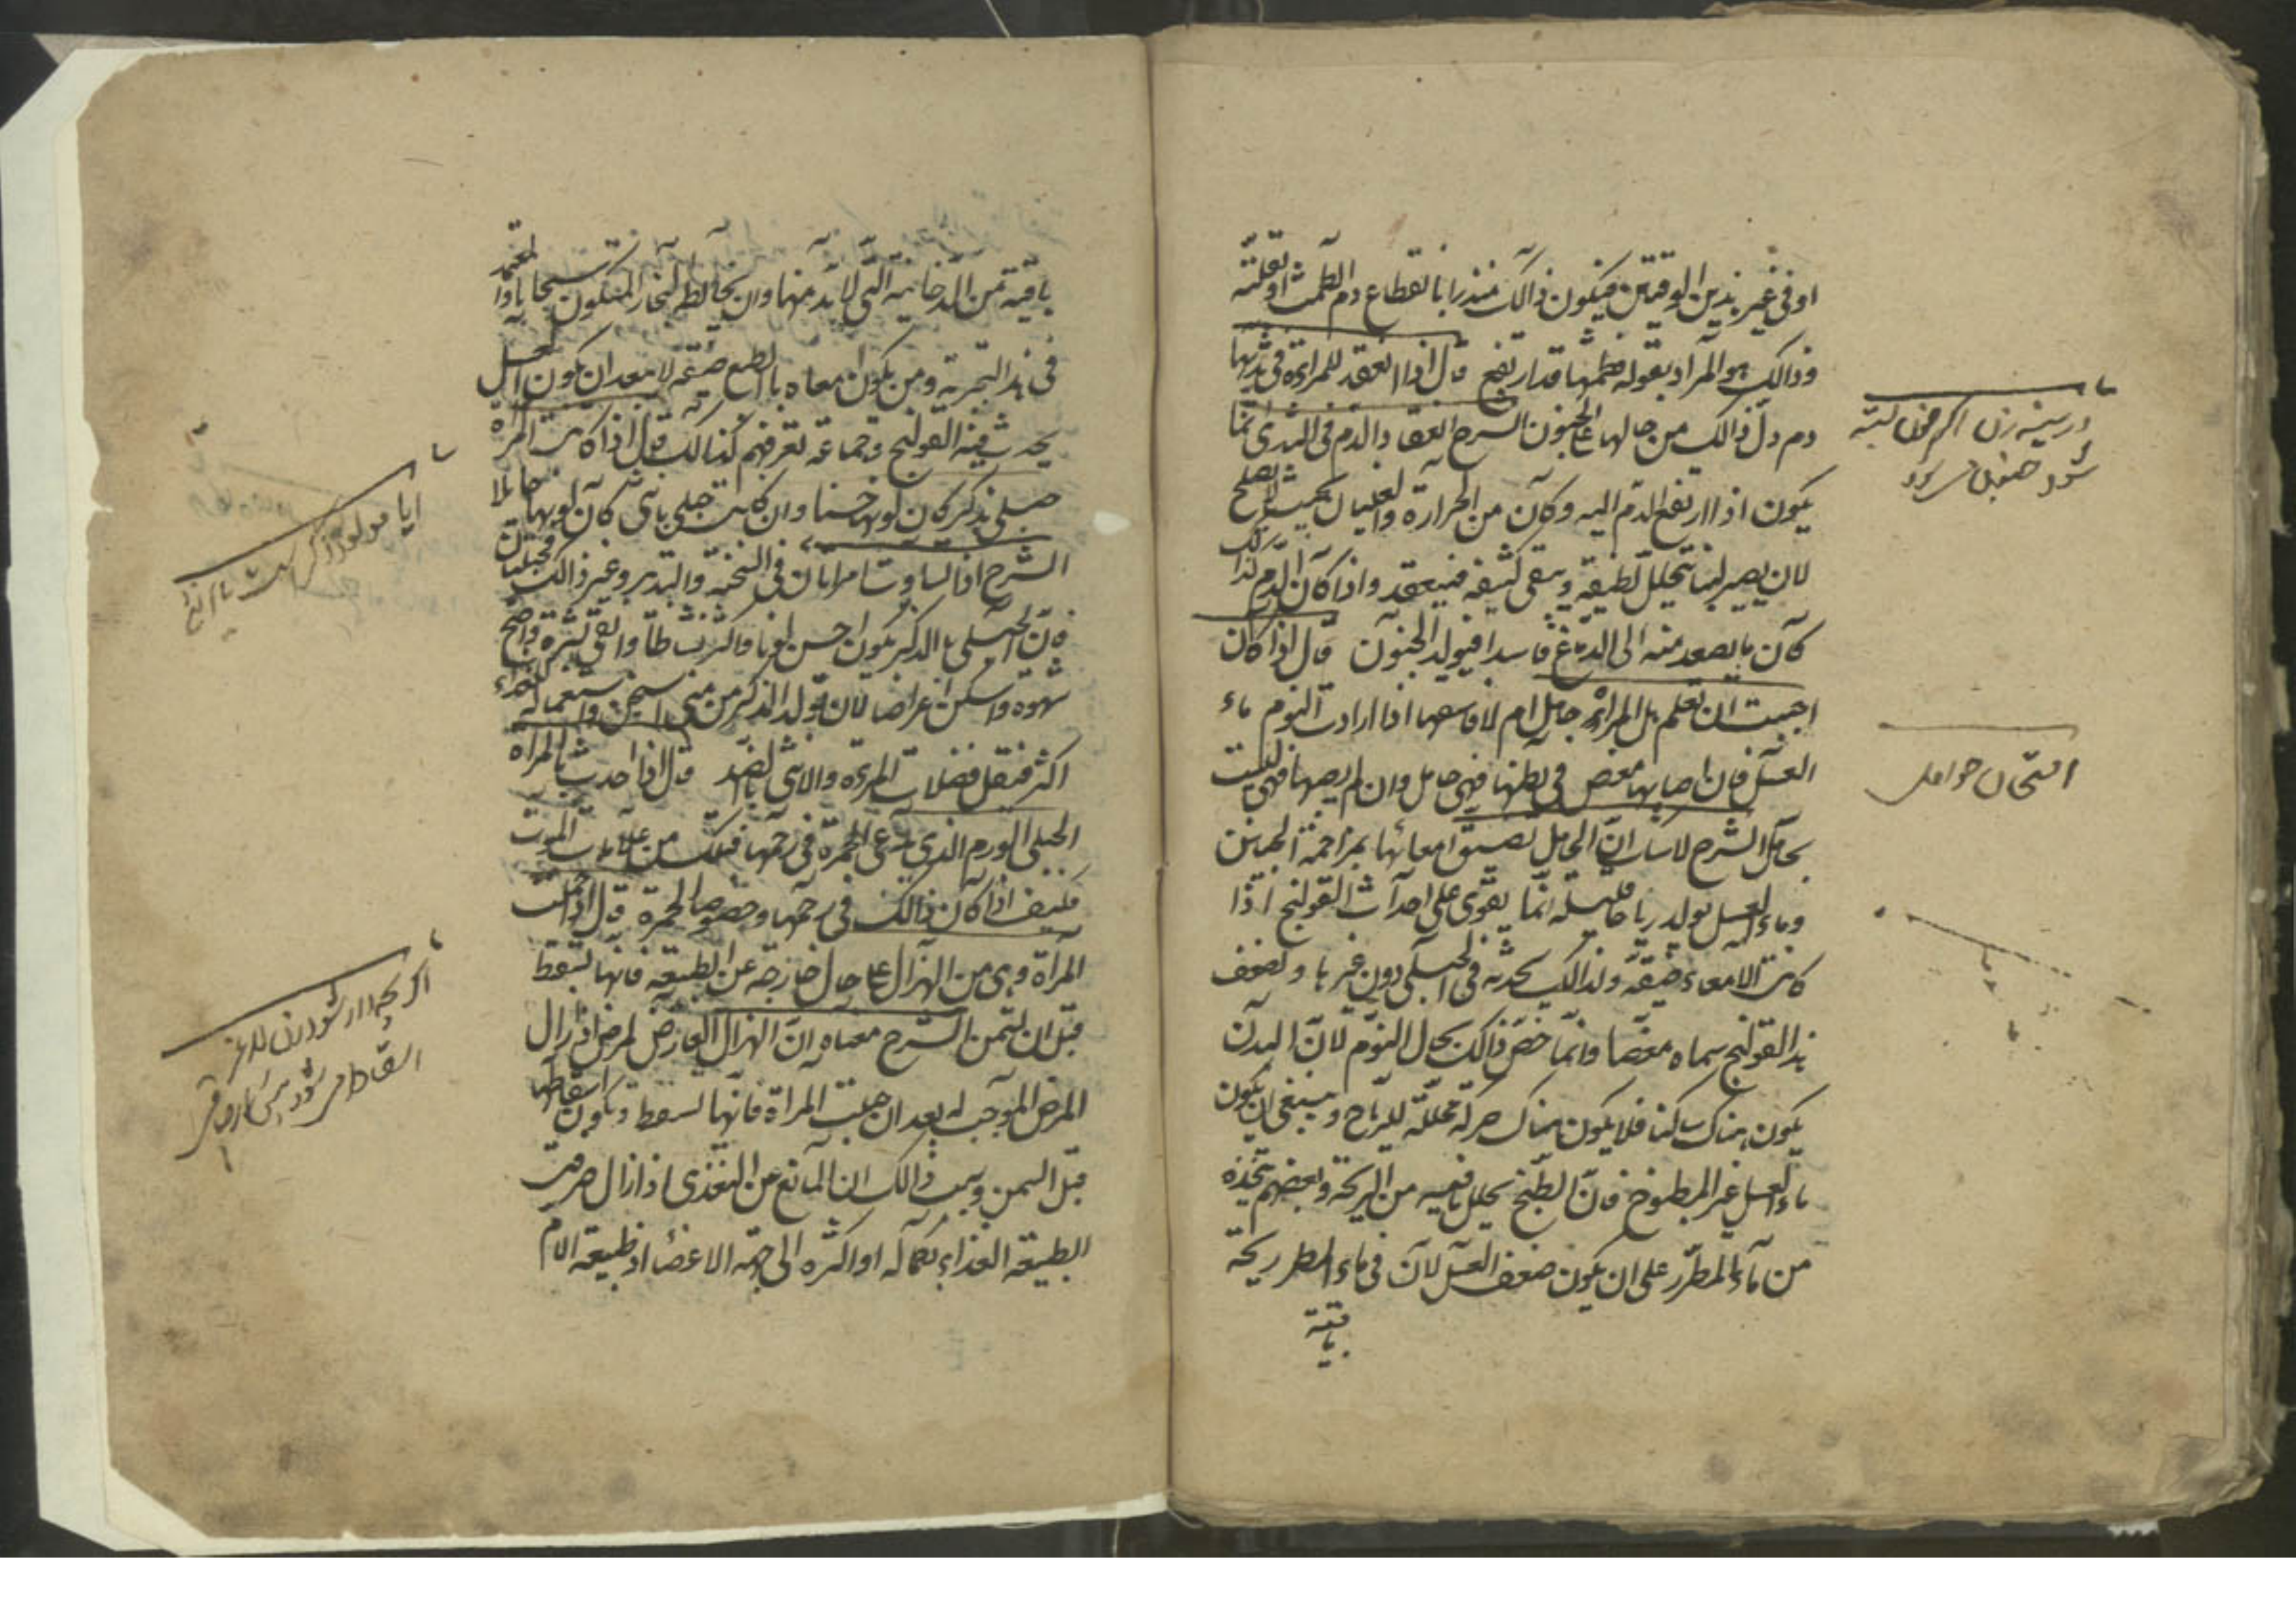 او فى غير هذين الوقتين فيكون ذالك منذرا بانقطاع دم الطمث او قلته
وذالك هو المراد بقوله فطمثها قد ارتفع قال اذا انعقد للمراءة فى ثديها
دم دل ذالك من حالها على الجنون الشرح انعقاد الدم فى الثدى انما
يكون اذا ارتفع الدم اليه وكان من الحرارة والغليان بحيث لا يصلح
لان يصير لبنا فتحلل لطيفه ويبقى كثيفه فينعقد واذا كان الدم كذالك
كان ما يصعد منه الى الدماغ فاسدا فيولد الجنون قال اذا كان
احببت ان تعلم هل المراة حامل ام لا فاسقها اذا ارادت النوم ماء
العسل فان اصابها مغص فى بطنها فهى حامل وان لم يصبها فهى ليست
بحامل الشرح لا شك ان الحامل تضيق امعائها بمزاحمة الجنين
وماء العسل يولد رياحا قليلة انما يقوى على احداث القولنج اذا
كانت الامعاء ضيقة ولذالك يحدثه فى الحبلى دون غيرها ولضعف
هذا القولنج سماه مغصا وانما خص ذالك بحال النوم لان البدن
يكون هناك ساكنا فلا يكون هناك حركة محللة للرياح وينبغى ان يكون
ماء العسل غير المطبوخ فان الطبخ يحلل ما فيه من الريحة وبعضهم يتخذه
من ماء المطر على ان يكون ضعف العسل لان فى ماء المطر ريحة
باقية
در سينه زن اگر خون بسته
شود جنون شود
امتحان حوامل
باقية من الدخانية التى لا بد منها وان يخالط البخار المتكون سحابا واعتمد
فى هذا التجربة ومن يكون امعاه بالطبع ضيقة لا يبعد ان يكون العسل
يحدث فيه القولنج وجماعة نعرفهم كذالك قال اذا كانت المراة
حبلى بذكر كان لونها حسنا وان كانت حبلى بانثى كان لونها حائلا
الشرح اذا تساوت امراتان فى السحنة والتدبير وغير ذالك مختلفتان
فان الحبلى بالذكر يكون احسن لونا واكثر نشاطا وانقى بشرة واصح
شهوة واسكن اعراضا لان تولد الذكر من منى اسخن واستعماله للغذاء
اكثر فتقل فضلات المرءة والانثى بالضد قال اذا حدث بالمراة
الحبلى الورم الذى يدعى الحمرة فى رحمها فذلك من علامات الموت
فكيف اذا كان ذالك فى رحمها وخصوصا الحمرة قال اذا حملت
المراة وهى من الهزال على حال خارجة عن الطبيعة فانها تسقط
قبل ان تسمن الشرح معناه ان الهزال العارض لمرض اذا زال
المرض الموجب له بعد ان حبلت المراة فانها تسقط ويكون اسقاطها
قبل السمن وسبب ذالك ان المانع من التغذى اذا زال صرفت
الطبيعة الغذاء بكماله او اكثره الى جهة الاعضاء اذ طبيعة الام
ايا مولود ذكر است يا انثى
اگر بچه دار شود زن لاغر
اسقاط مى شود